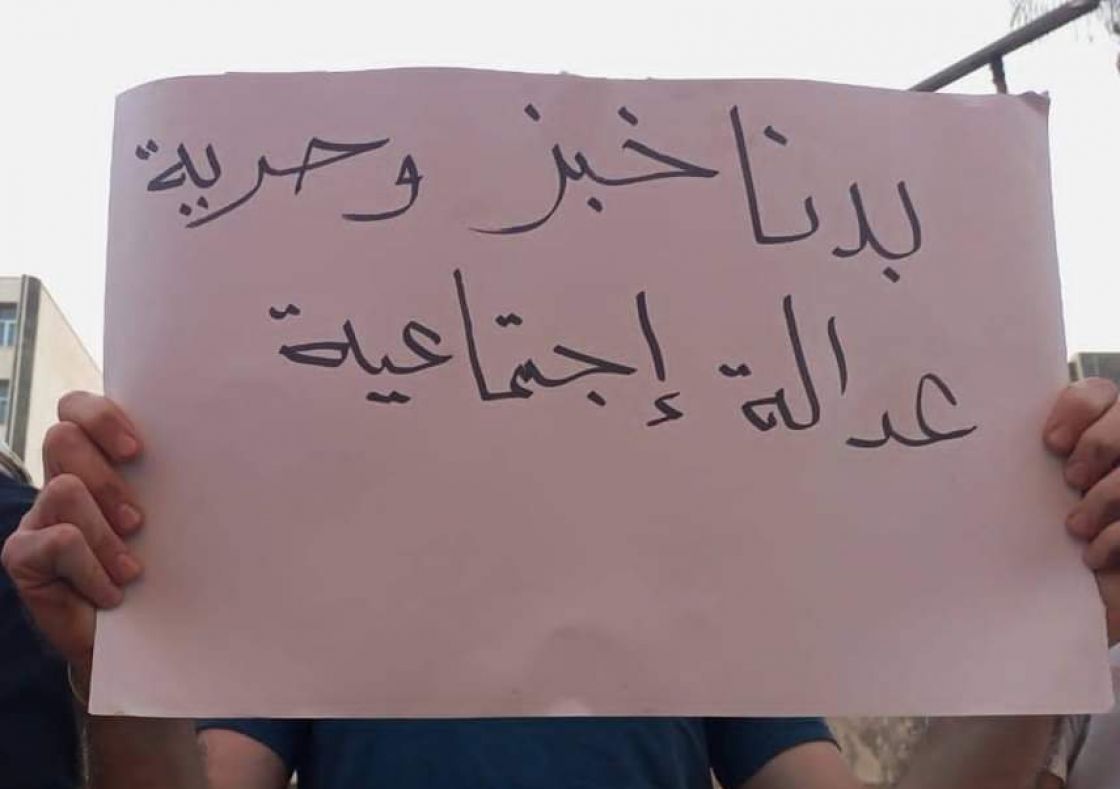 بدنا خبز وحرية
عدالة إجتماعية